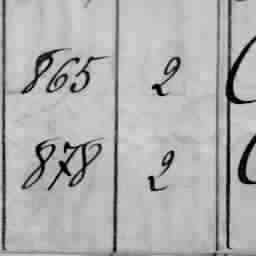 865 2
878 2